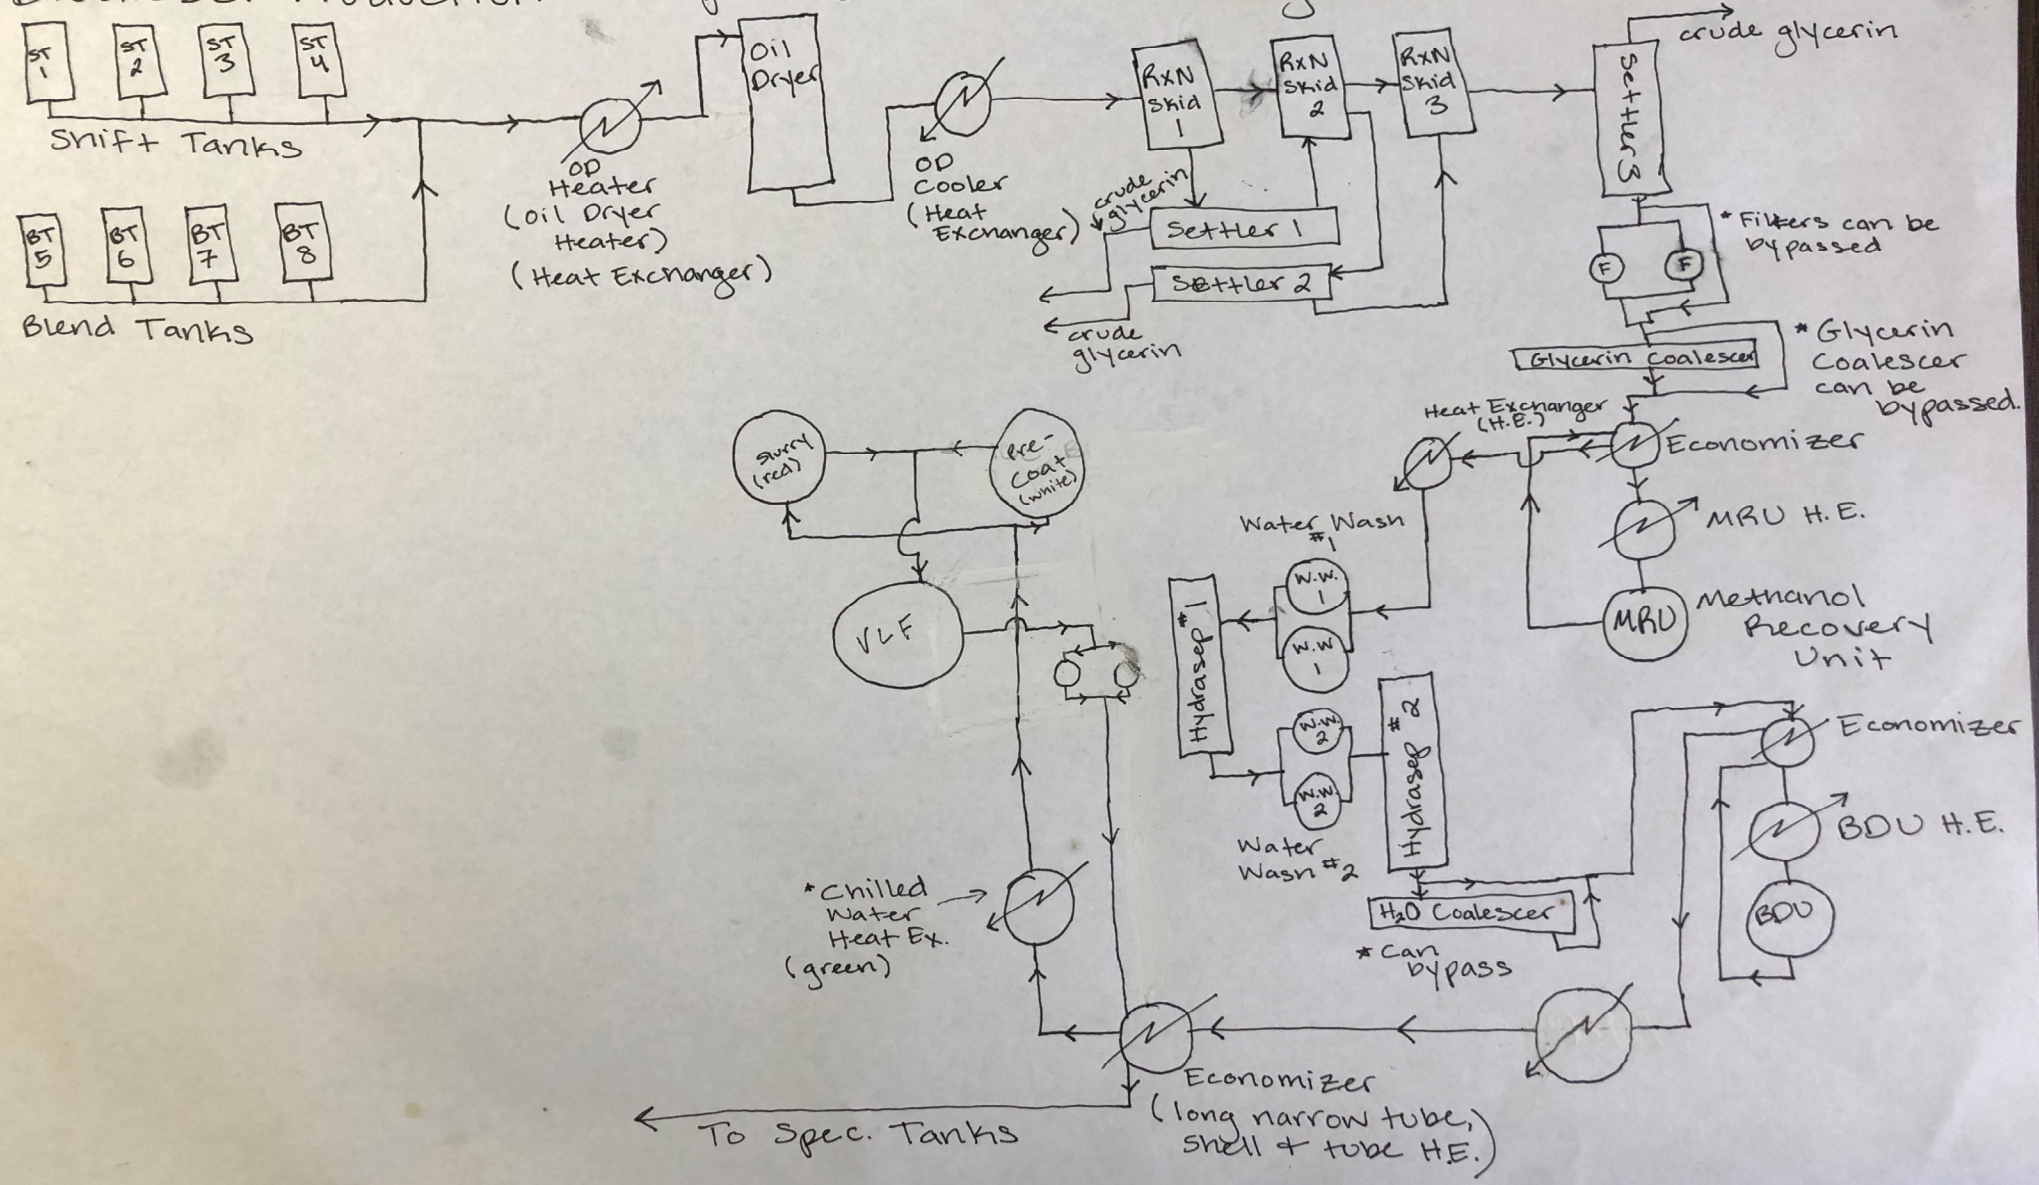 Biodiesel Production
ST
1
ST
2
ST
3
ST
4
Shift Tanks
BT
5
BT
6
BT
7
BT
8
Blend Tanks
OD
Heater
(Oil Dryer
Heater)
(Heat Exchanger)
Oil
Dryer
OD
Cooler
(Heat
Exchanger)
RxN
Skid
1
RxN
Skid
2
RxN
Skid
3
crude
glycerin
Settler 1
Settler 2
crude
glycerin
Settler 3
crude glycerin
F
F
* Filters can be
bypassed
Glycerin Coalescer
* Glycerin
Coalescer
can be
bypassed.
Heat Exchanger
(H.E.)
Economizer
MRU H.E.
MRU
Methanol
Recovery
Unit
Water Wash
#1
W.W.
1
W.W
1
Hydrasep #1
W.W.
2
W.W.
2
Water
Wash #2
Hydrasep #2
H2O Coalescer
* Can
bypass
Economizer
BDU H.E.
BDU
Slurry
(red)
Pre-
Coat
(white)
VLF
* Chilled
Water
Heat Ex.
(green)
Economizer
(long narrow tube,
Shell + tube H.E.)
To Spec. Tanks